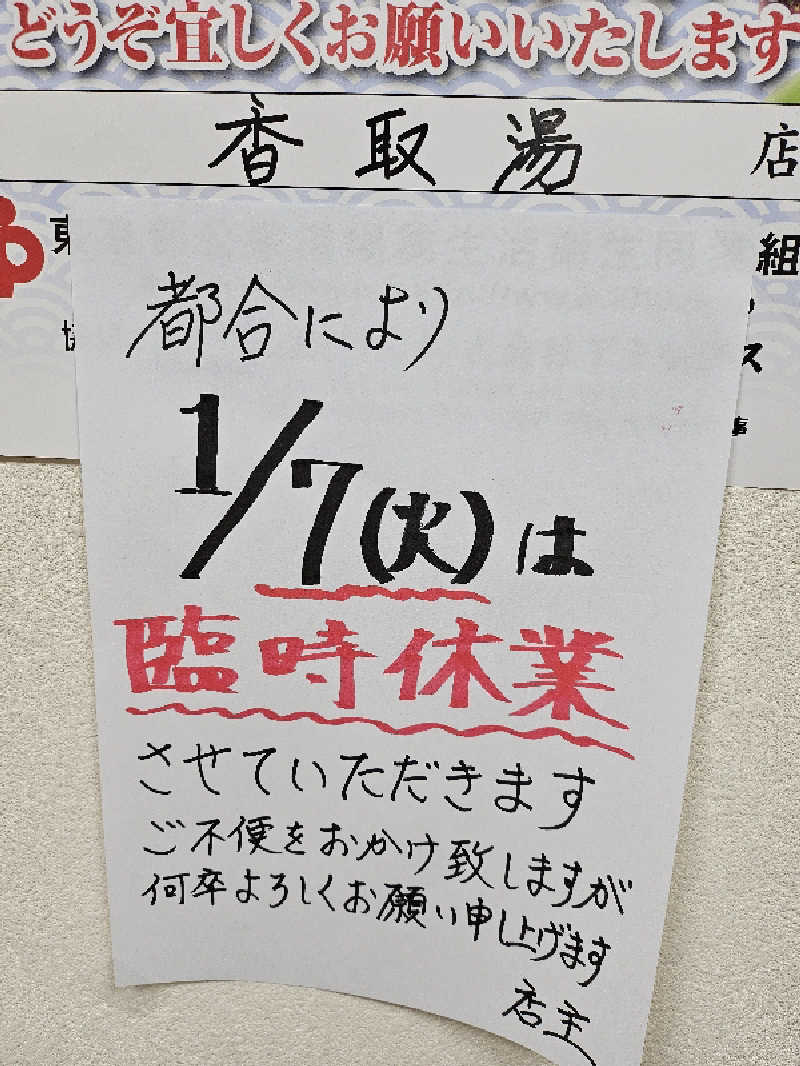 どうぞ宜しくお願いいたします
香取湯 店
東 組
ス
都合により
1/7(火)は
臨時休業
させていただきます
ご不便をおかけ致しますが
何卒よろしくお願い申し上げます
店主